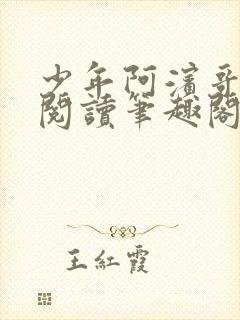 少年阿濱哥
閱讀筆趣閣
王紅霞